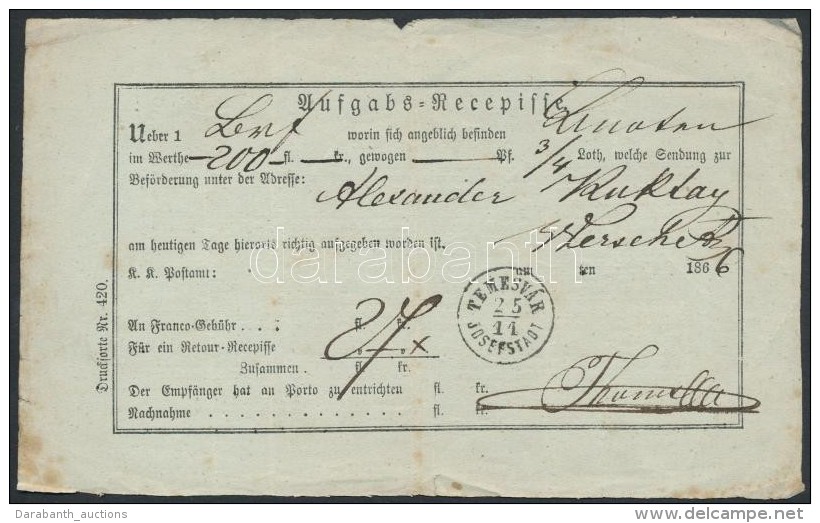 Aufgabs-Recepisse
Ueber 1 Brf worin sich angeblich befinden Banknoten
im Werthe 200 fl. — kr., gewogen — Pf. 3/4 Loth, welche Sendung zur
Beförderung unter der Adresse: Alexander
Werschetz
am heutigen Tage hierorts richtig aufgegeben worden ist.
K. K. Postamt: am ten 1866
TEMESVÁR
25
11
JOSEFSTADT
An Franco-Gebühr . . : fl. kr.
Für ein Retour-Recepisse " "
27 x
Zusammen . fl. kr.
Der Empfänger hat an Porto zu entrichten fl. kr.
Nachnahme . . . . . . . . . . . . . . fl. kr.
Drucksorte Nr. 420.
darabanth
Darabanth_auctions
delcampe.net